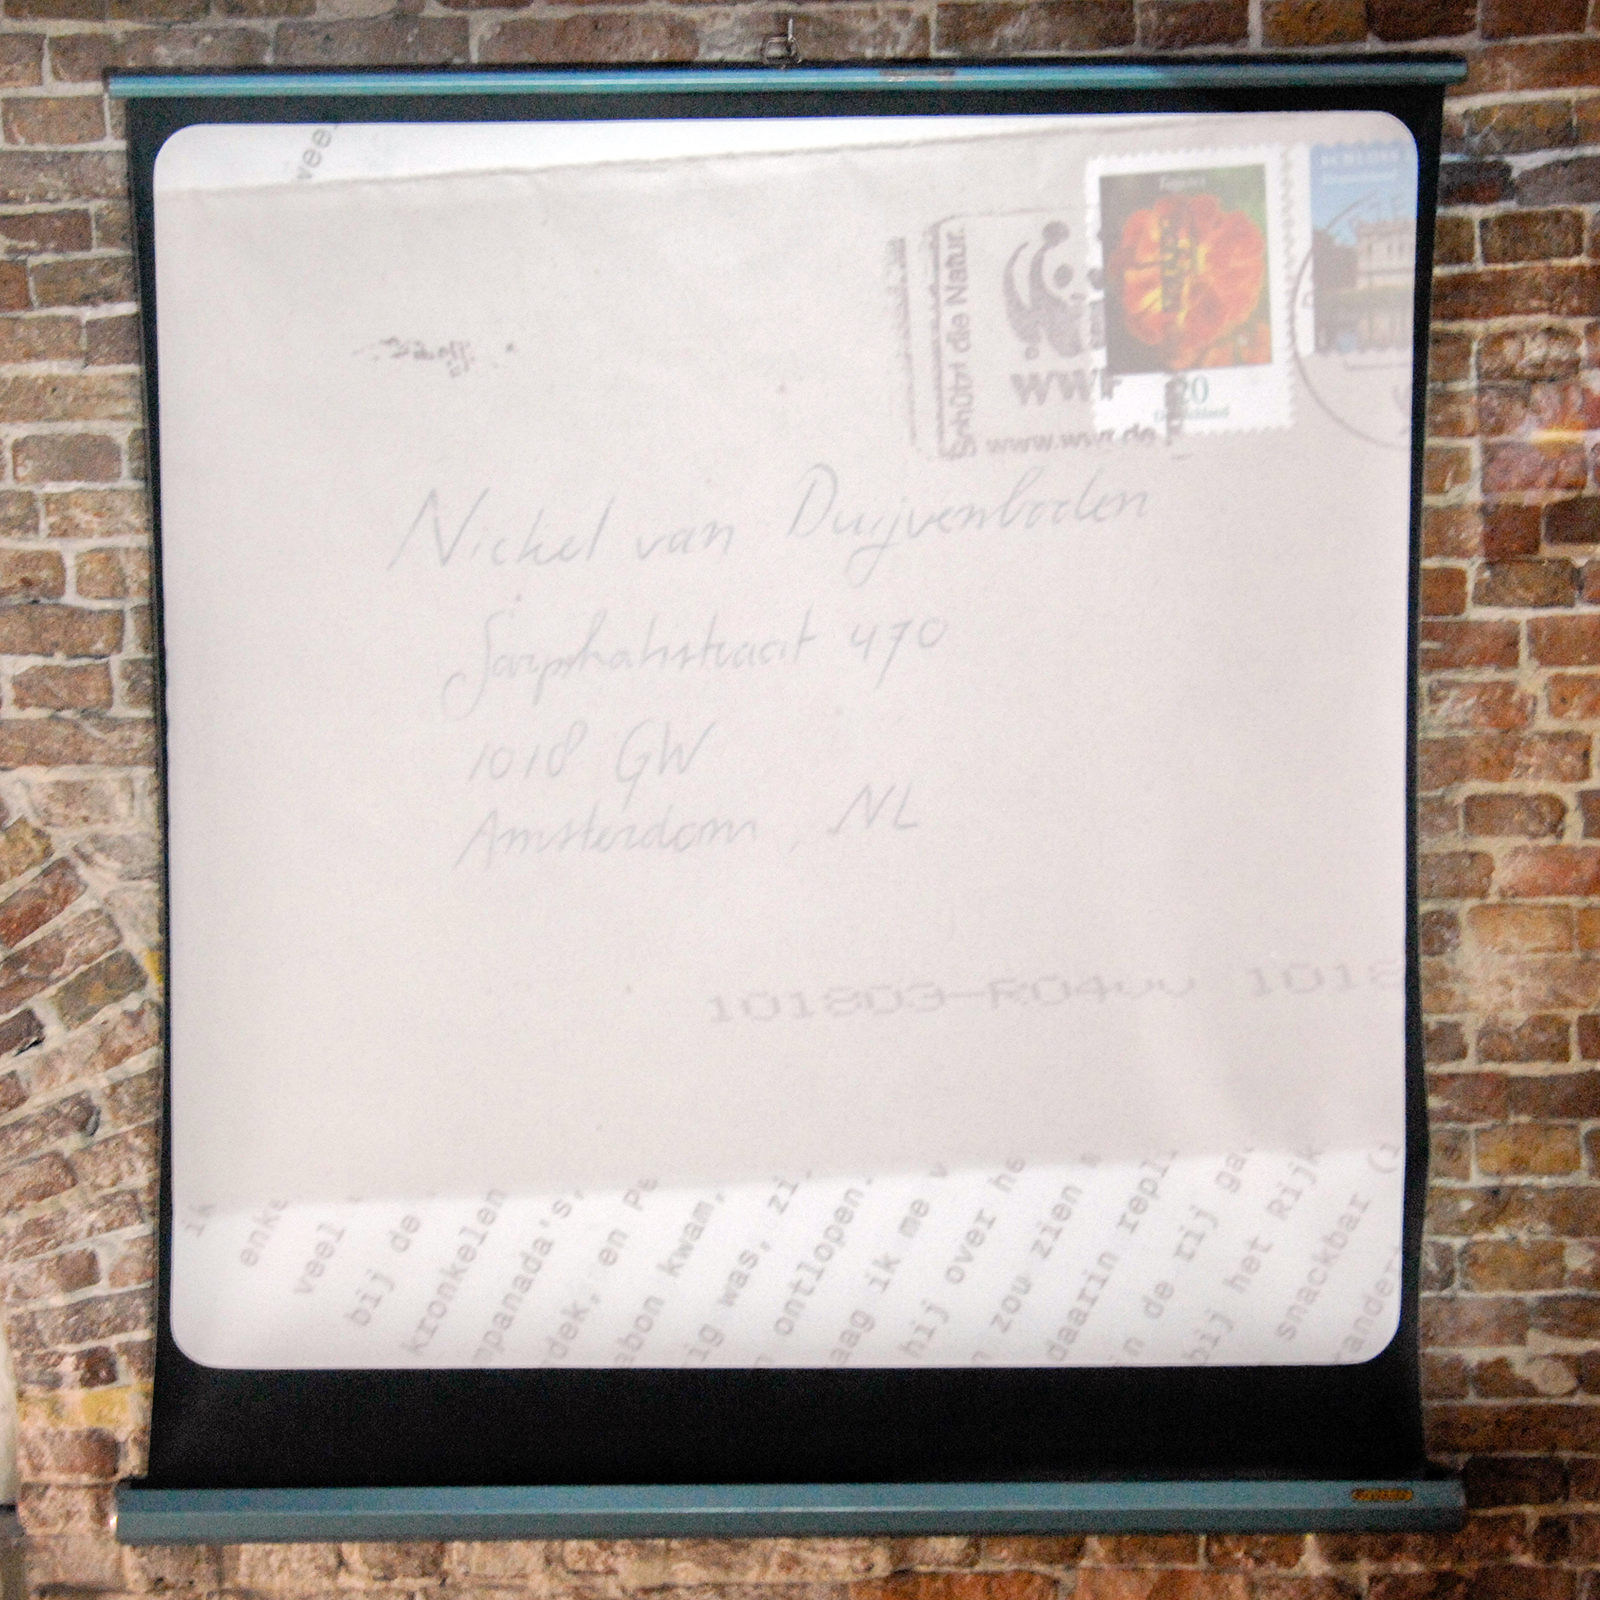 weel
Schützt die Natur.
WWF
www.wwf.de
20
Deutschland
SCHLOSS
Nickel van Duijvenboden
Sarphatistraat 470
1018 GW
Amsterdam, NL
101803-R04 1018
ik
enke
veel
bij de
kronkelen
mpanada's,
dek, en Pe
abon kwam,
ig was, zi
ontlopen.
aag ik me v
hij over he
n zou zien
daarin repl
in de rij ga
bij het Rijk
snackbar (i
rander